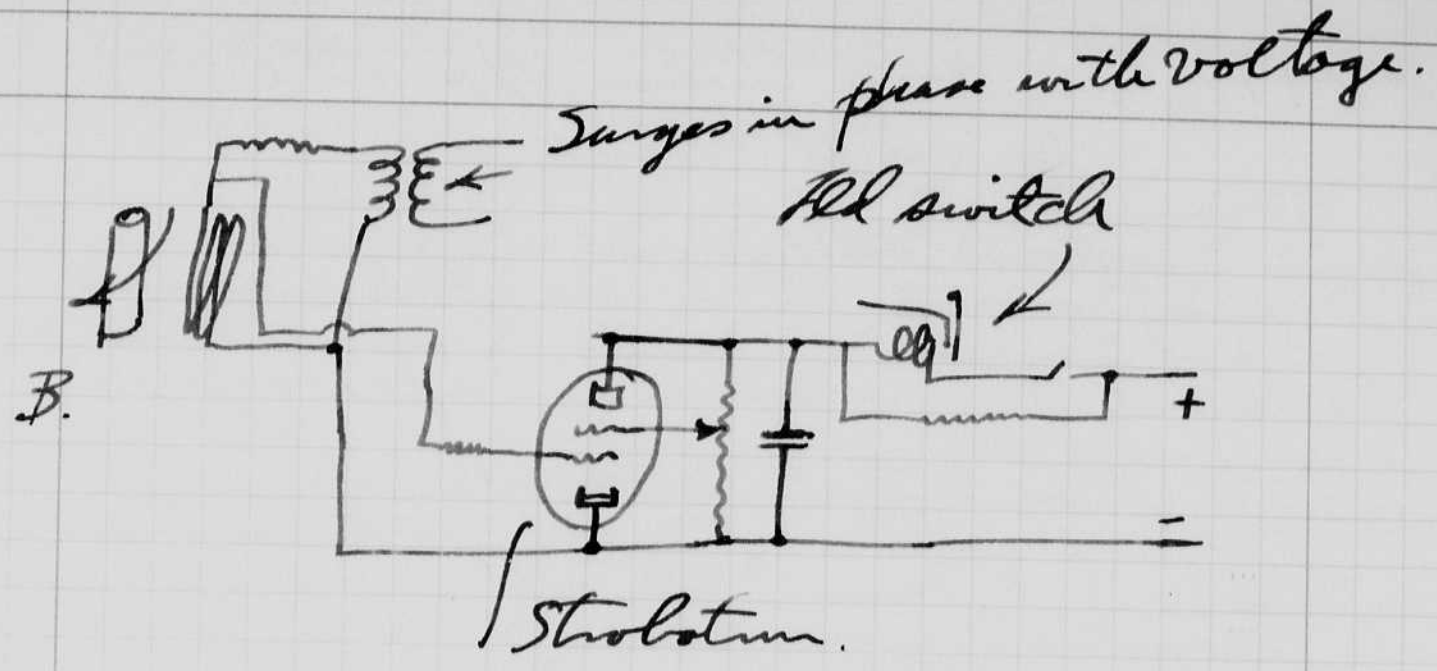 Surges in phase with voltage.
switch
B.
+
-
Strobotron.